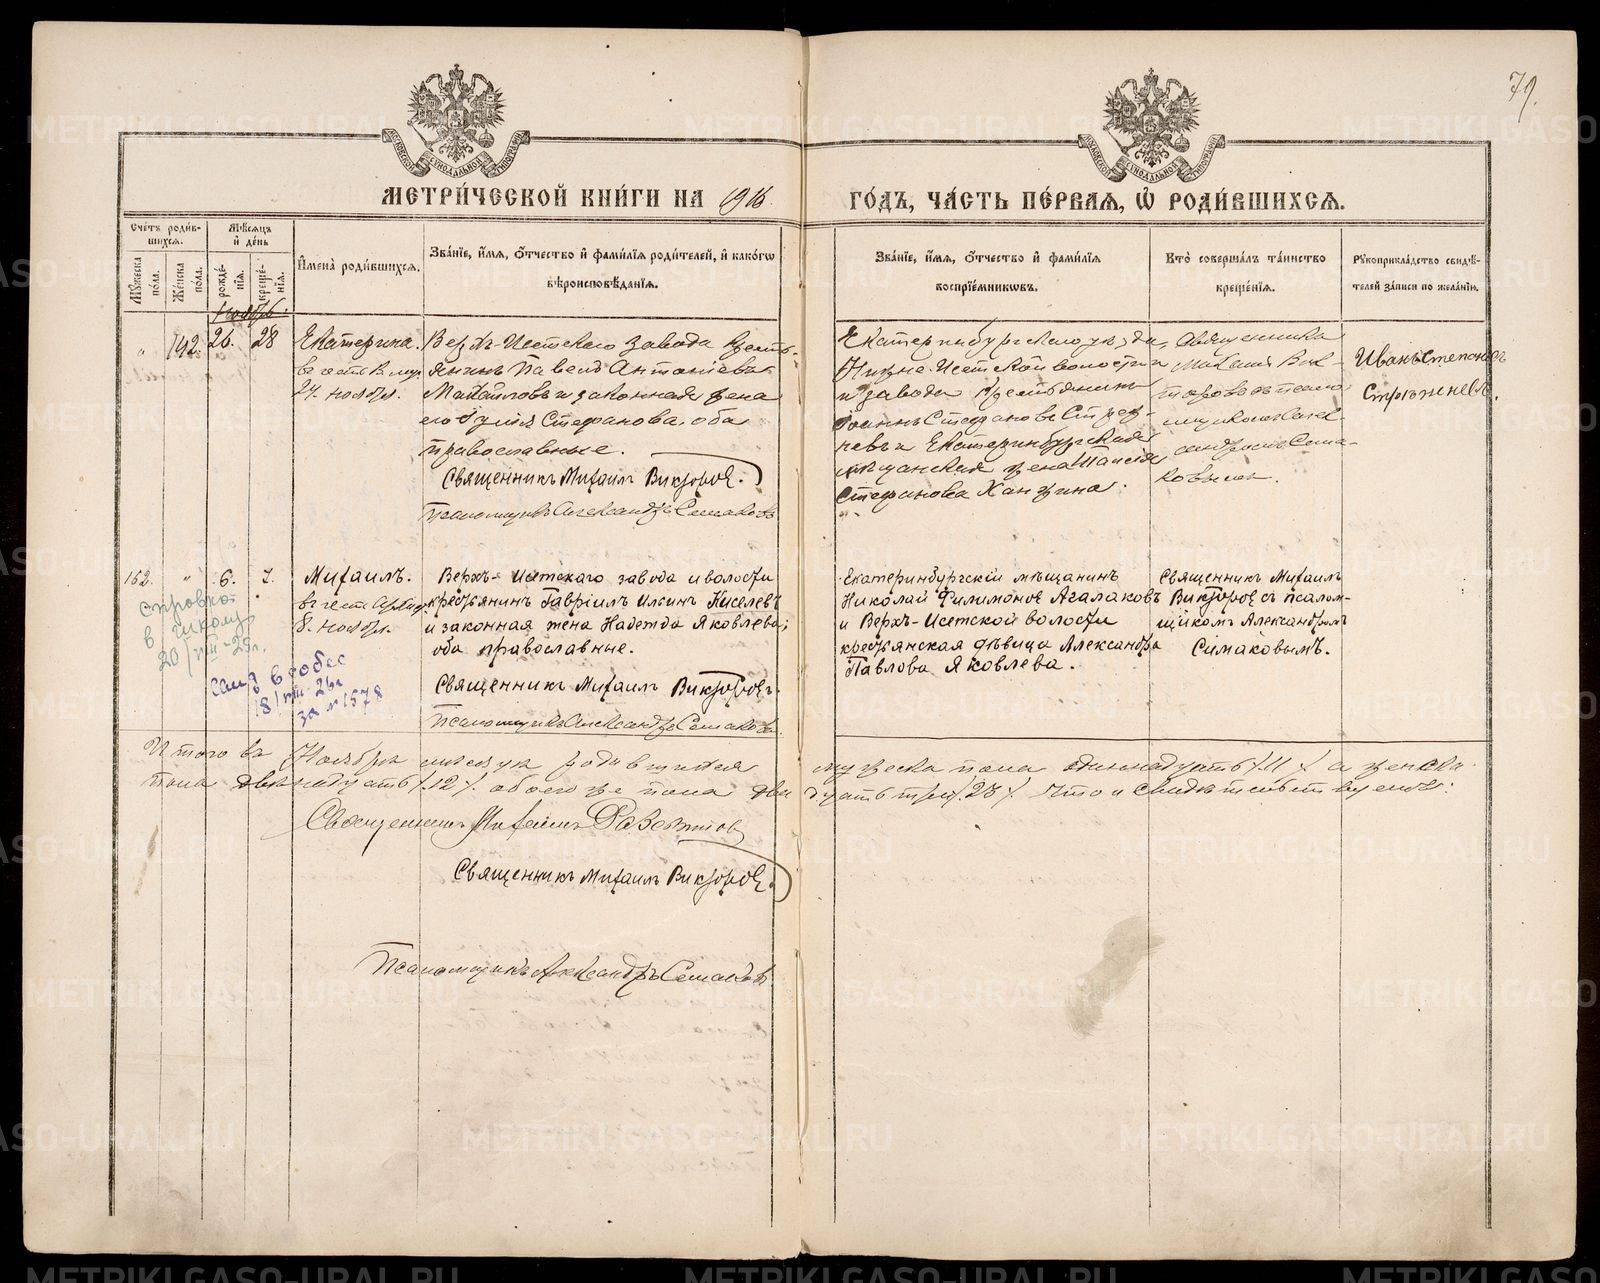 79.
МЕТРИ́ЧЕСКОЙ КНИ́ГИ НА 1916 ГО́ДЪ, ЧА́СТЬ ПЕ́РВАѦ, Ѡ҆ РОДИ́ВШИХСѦ.
Сче́тъ роди́в-
шихсѧ.
Мѣ́сѧцъ
и҆ де́нь
Мꙋ́жеска
по́ла.
Же́нска
по́ла.
рожде́-
нїѧ.
креще́-
нїѧ.
И҆мена̀ роди́вшихсѧ.
Зва́нїе, и҆́мѧ, ѻ҆́тчество и҆ фами́лїѧ роди́телей, и҆ како́гѡ
вѣроисповѣ́данїѧ.
Зва́нїе, и҆́мѧ, ѻ҆́тчество и҆ фами́лїѧ
воспрїе́мникѡвъ.
Кто̀ соверша́лъ та́инство
креще́нїѧ.
Рꙋкоприкла́дство свидѣ́-
телей за́писи по жела́нїю.
Ноябрь.
" 142 26. 28
Екатерина.
въ честь В. муч.
24 ноября.
Верхъ-Исетскаго завода кресть-
янинъ Павелъ Антоніевъ
Михайловъ и законная жена
его Стефанова, оба
православные.
Священникъ Михаилъ Викторовъ.
Псаломщикъ Александръ Симаковъ
Екатеринбургскаго уѣзда,
Нижне-Исетской волости
и завода крестьянинъ
Іоаннъ Стефановъ Стреж-
невъ и Екатеринбургская
мѣщанская жена Таисія
Стефанова Ханжина.
Священникъ
Михаилъ Вик-
торовъ съ псалом-
щикомъ Алек-
сандромъ Сима-
ковымъ.
Иванъ Степановъ
Стрѣжневъ.
152. " 6. 7.
Михаилъ.
въ честь Архист.
8. ноября.
Верхъ-Исетскаго завода и волости
крестьянинъ Гавріилъ Ильинъ Киселевъ
и законная жена Надежда Яковлева;
оба православные.
Священникъ Михаилъ Викторовъ.
Псаломщикъ Александръ Симаковъ.
Екатеринбургскій мѣщанинъ
Николай Филимоновъ Агалаковъ
и Верхъ-Исетской волости
крестьянская дѣвица Александра
Павлова Яковлева.
Священникъ Михаилъ
Викторовъ съ псалом-
щикомъ Александромъ
Симаковымъ.
в школу
20/VIII-25г.
в собес
18/VIII 26г
за № 1578
Итого въ Ноябрѣ мѣсяцѣ родившихся мужеска пола одиннадцать /11/ а женска
пола двѣнадцать /12/ обоего же пола двадцать три /23/. Что и свидѣтельствуемъ:
Священникъ Михаилъ
Священникъ Михаилъ Викторовъ.
Псаломщикъ Александръ Симаковъ.
METRIKI.GASO-URAL.RU